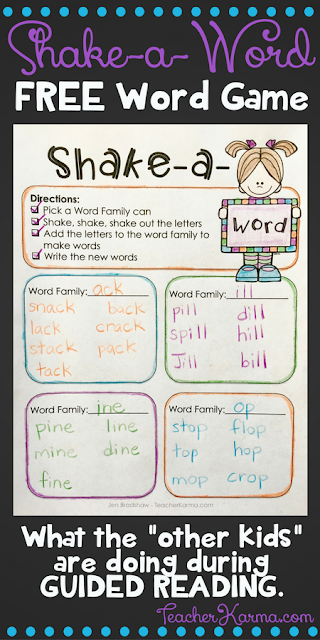 Shake-a-Word
FREE Word Game
Shake-a-
Word
Directions:
Pick a Word Family can
Shake, shake, shake out the letters
Add the letters to the word family to
make words
Write the new words
Word Family: ack
snack back
lack crack
stack pack
tack
Word Family: ill
pill dill
spill hill
Jill bill
Word Family: ine
pine line
mine dine
fine
Word Family: op
stop flop
top hop
mop crop
Jen Bradshaw - TeacherKarma.com
What the "other kids"
are doing during
GUIDED READING.
TeacherKarma.com